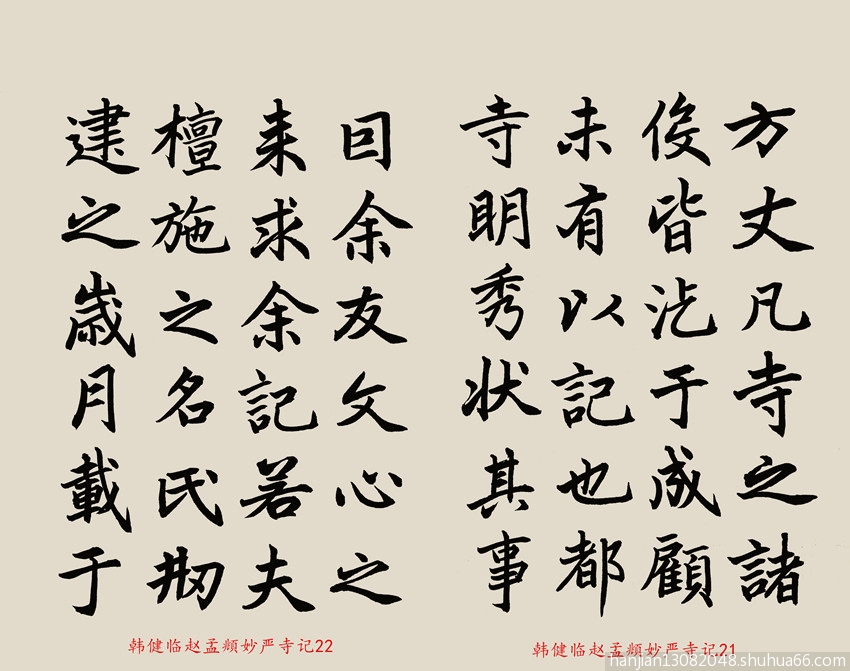 方丈凡寺之諸
役皆汔于成顧
未有以記也都
寺明秀状其事
囙余友文心之
来求余記若夫
檀施之名氏刱
建之歲月載于
韩健临赵孟頫妙严寺记21
韩健临赵孟頫妙严寺记22
hanjian13082048.shuhua66.com